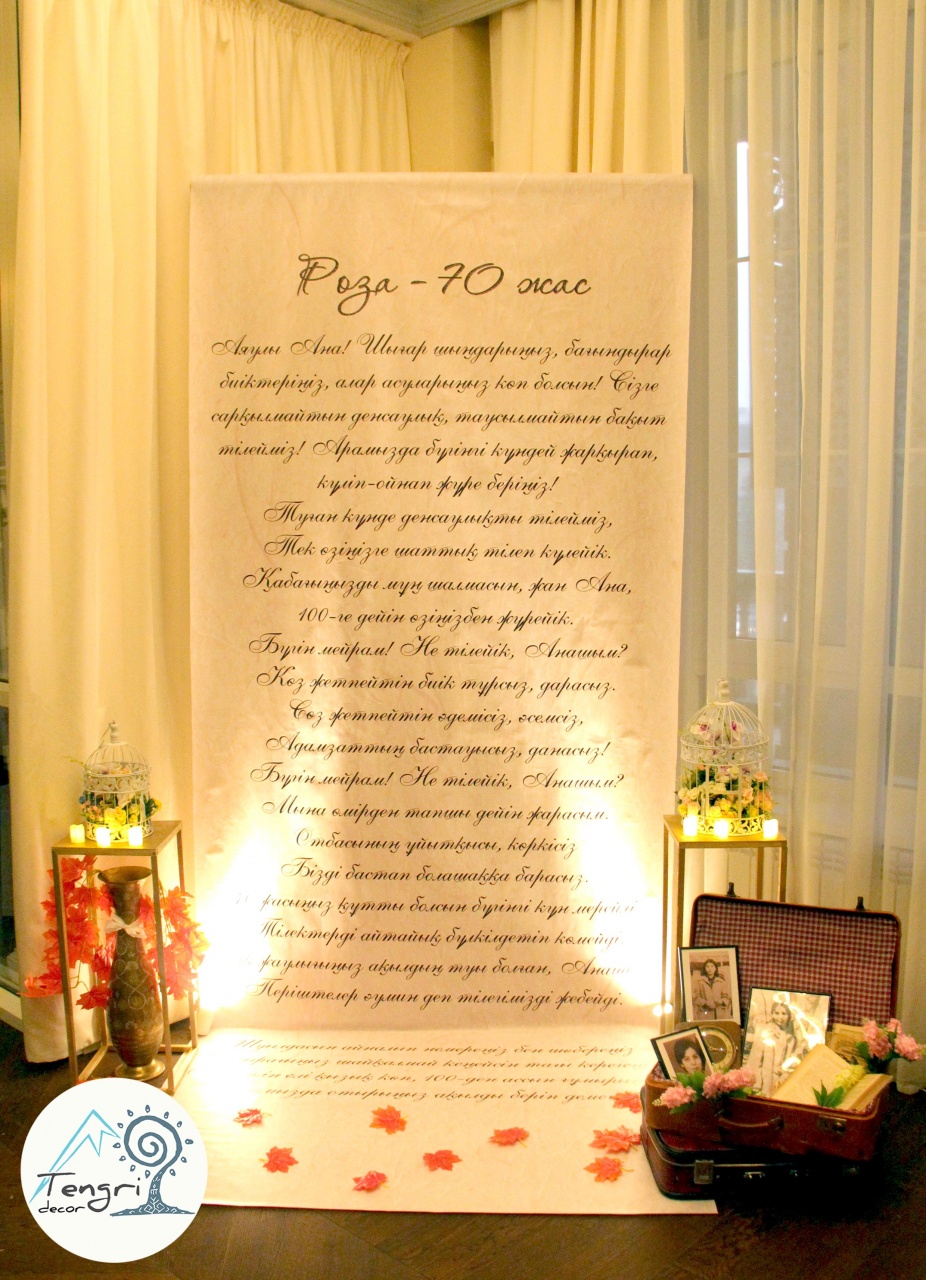 Роза - 70 жас
Аяулы Ана! Шығар шыңдарыңыз, бағындырар
биіктеріңіз, алар асуларыңыз көп болсын! Сізге
сарқылмайтын денсаулық, таусылмайтын бақыт
тілейміз! Арамызда бүгінгі күндей жарқырап,
күліп-ойнап жүре беріңіз!
Туған күнде денсаулықты тілейміз,
Тек өзіңізге шаттық тілеп күлейік.
Қабағыңызды мұң шалмасын, жан Ана,
100-ге дейін өзіңізбен жүрейік.
Бүгін мейрам! Не тілейік, Анашым?
Көз жетпейтін биік тұрсыз, дарасыз.
Сөз жетпейтін әдемісіз, әсемсіз,
Адамзаттың бастауысыз, данасыз!
Бүгін мейрам! Не тілейік, Анашым?
Мына өмірден тапшы дейін жарасым.
Отбасының ұйытқысы, көркісіз
Бізді бастап болашаққа барасыз.
құтты болсын бүгінгі күн мерейі
Тілектерді айтайық бүлкілдетіп көмейді
ақылдың туы болған,
Періштелер әумин деп тілегімізді жебейді.
көп, 100-ден ассын
отырыңыз ақылды беріп
Tengri
decor